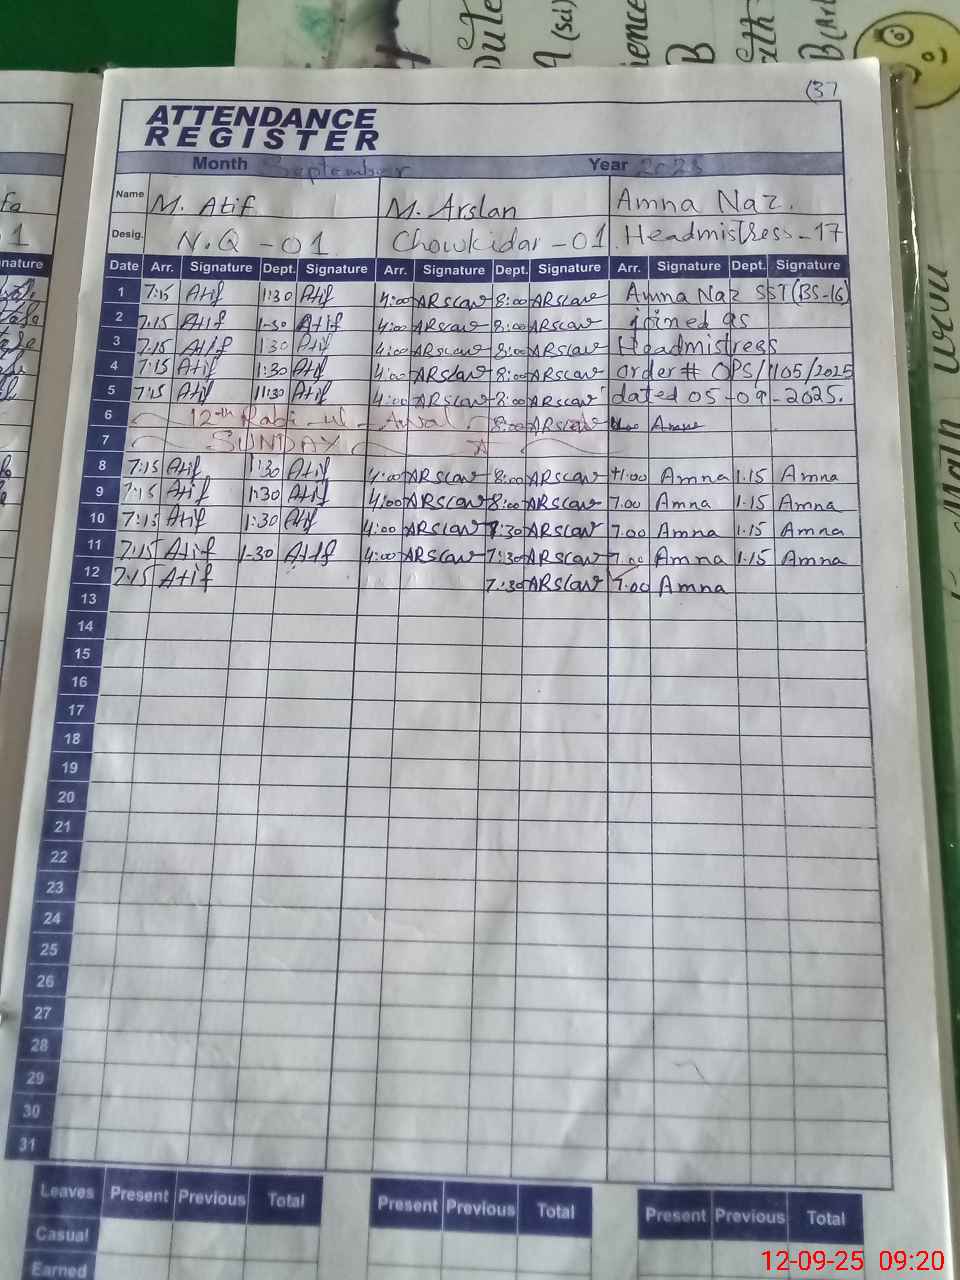 (37
ATTENDANCE
REGISTER
Month September Year 2025
Name M. Atif M. Arslan Amna Naz.
Desig. N.Q - 01 Chowkidar - 01 Headmistress - 17
Date Arr. Signature Dept. Signature Arr. Signature Dept. Signature Arr. Signature Dept. Signature
1 7:15 Atif 1:30 Atif 4:00 ARSLAN 8:00 ARSLAN Amna Naz SST (BS-16)
2 7:15 Atif 1-30 Atif 4:00 ARSLAN 8:00 ARSLAN joined as
3 7:15 Atif 1:30 Atif 4:00 ARSLAN 8:00 ARSLAN Headmistress
4 7:15 Atif 1:30 Atif 4:00 ARSLAN 8:00 ARSLAN order # OPS/1105/2025
5 7:15 Atif 1:30 Atif 4:00 ARSLAN 8:00 ARSLAN dated 05-09-2025.
6 12th Rabi-ul-Awal 8:00 ARSLAN
7 SUNDAY
8 7:15 Atif 1:30 Atif 4:00 ARSLAN 8:00 ARSLAN Amna 1.15 Amna
9 7:15 Atif 1:30 Atif 4:00 ARSLAN 8:00 ARSLAN 7.00 Amna 1.15 Amna
10 7:15 Atif 1:30 Atif 4:00 ARSLAN 7:30 ARSLAN 7.00 Amna 1.15 Amna
11 7:15 Atif 1-30 Atif 4:00 ARSLAN 7:30 ARSLAN 7.00 Amna 1.15 Amna
12 7:15 Atif 7:30 ARSLAN 7.00 Amna
13
14
15
16
17
18
19
20
21
22
23
24
25
26
27
28
29
30
31
Leaves Present Previous Total Present Previous Total Present Previous Total
Casual
Earned
12-09-25 09:20